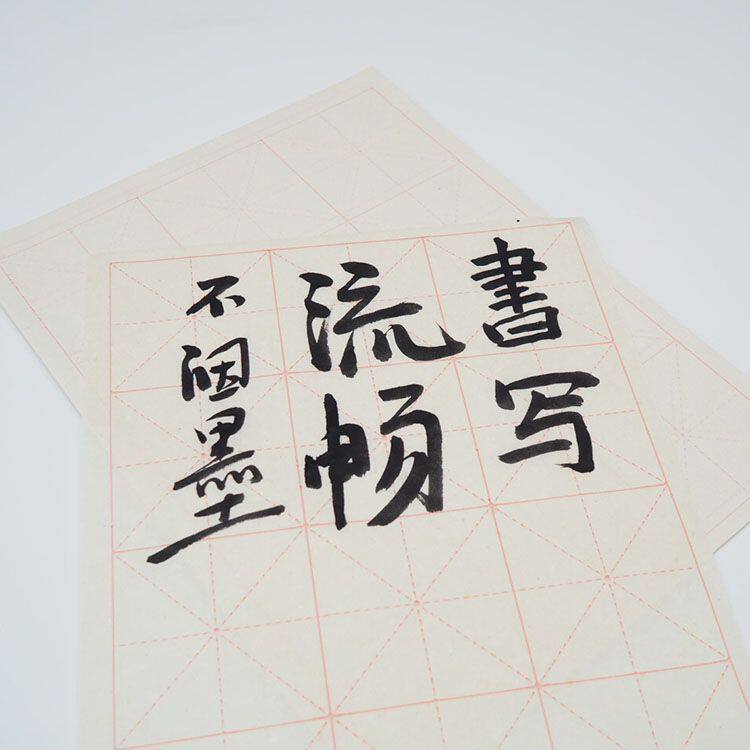 書写
流畅
不洇墨